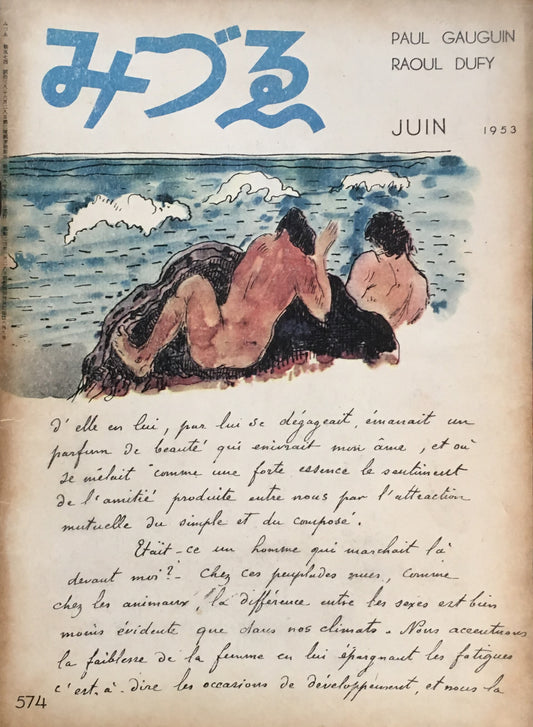 みづゑ
PAUL GAUGUIN
RAOUL DUFY
JUIN 1953
d'elle en lui, par lui se dégageait, émanait un
parfum de beauté qui enivrait mon âme, et où
se mêlait comme une forte essence le sentiment
de l'amitié produite entre nous par l'attraction
mutuelle du simple et du composé.
Etait-ce un homme qui marchait là
devant moi?- Chez ces peuplades nues, comme
chez les animaux, la différence entre les sexes est bien
moins évidente que dans nos climats. Nous accentuons
la faiblesse de la femme en lui épargnant les fatigues
c'est-à-dire les occasions de développement, et nous la
574